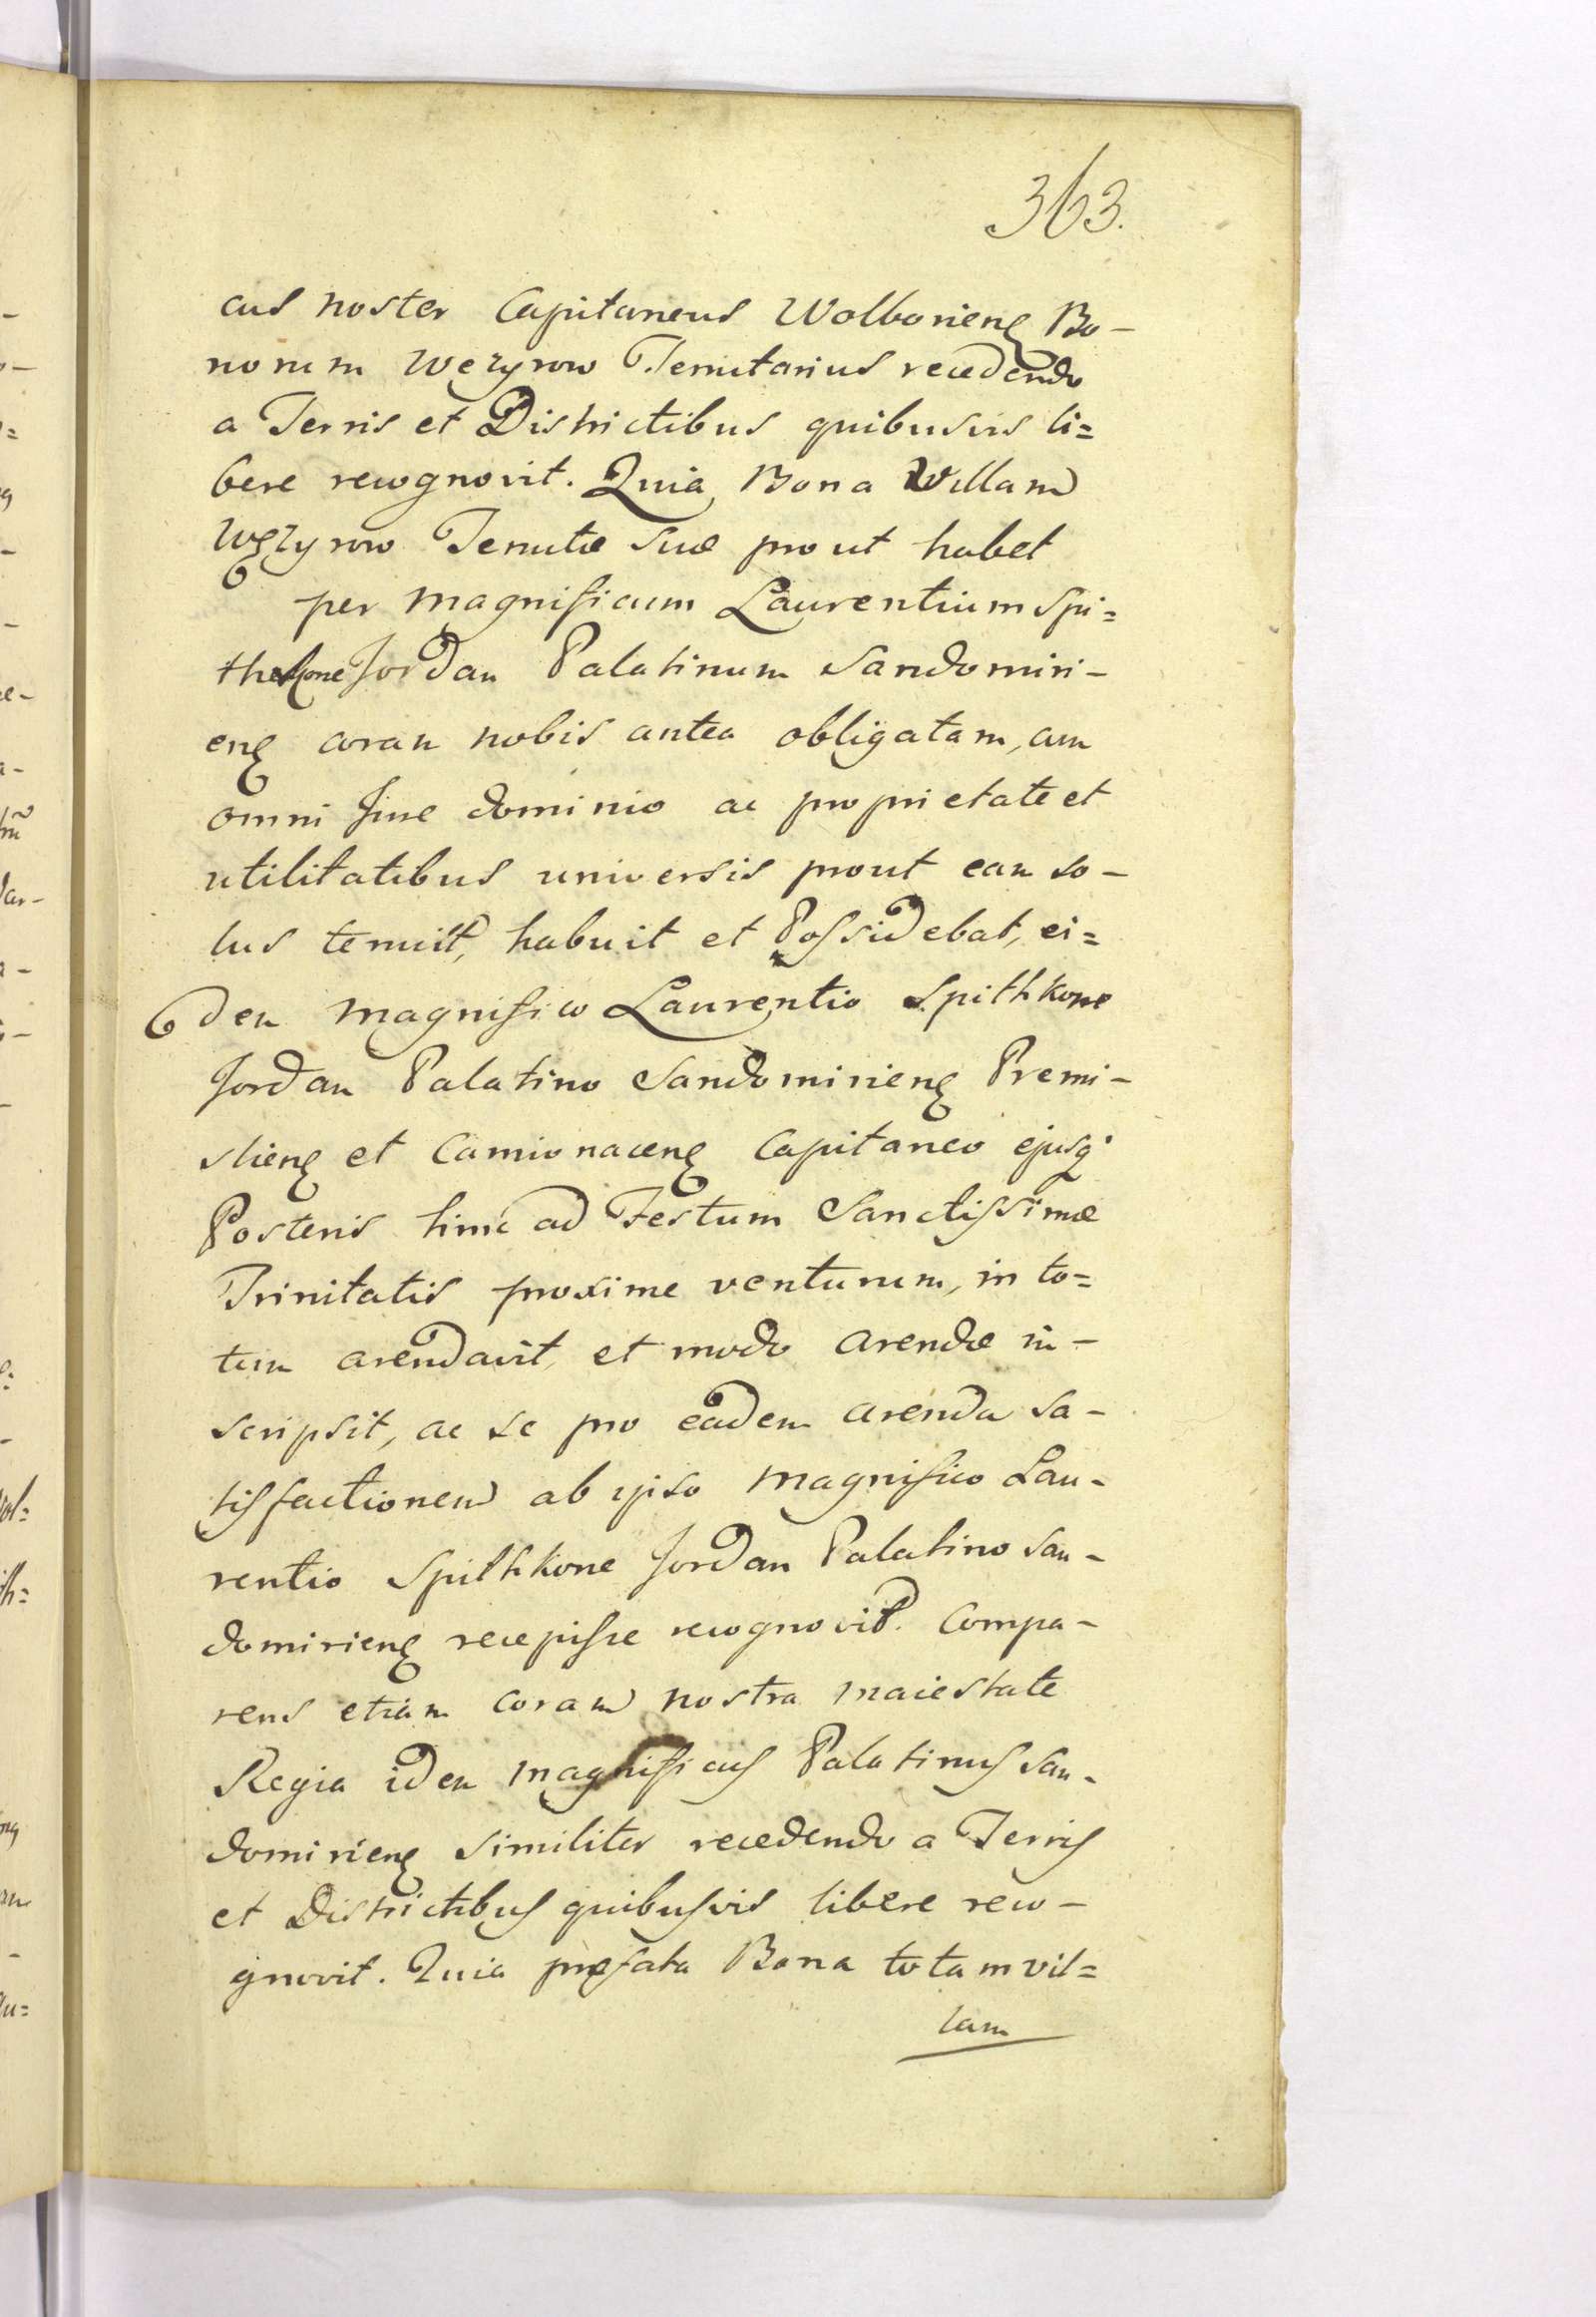 363.
cus noster Capitaneus Wolborieng Bo-
norum Węzyrow Tenutarius recedendo
a Terris et Districtibus quibusvis li=
bere recognovit. Quia Bona Villam
Węzyrow Tenutæ suæ prout habet
per Magnificum Laurentium Spi=
thkone Jordan Palatinum Sandomiri-
eng coram nobis antea obligatam, cum
omni Jure dominio ac proprietate et
utilitatibus universis prout eam so-
lus tenuit, habuit et Possidebat, ei=
dem Magnifico Laurentio Spithkone
Jordan Palatino Sandomirieng Premi-
slieng et Camionaceng Capitaneo ejusq
Posteris hinc ad Festum Sanctissimæ
Trinitatis proxime venturum, in to=
tum arendavit, et modo arendæ in-
scripsit, ac se pro eadem arenda sa-
tisfactionem ab ipso Magnifico Lau-
rentio Spithkone Jordan Palatino San-
domirieng recepisse recognovit. Compa-
rens etiam coram nostra Maiestate
Regia idem Magnificus Palatinus San-
domirieng similiter recedendo a Terris
et Districtibus quibusvis libere reco-
gnovit. Quia præfata Bona totam vil=
lam